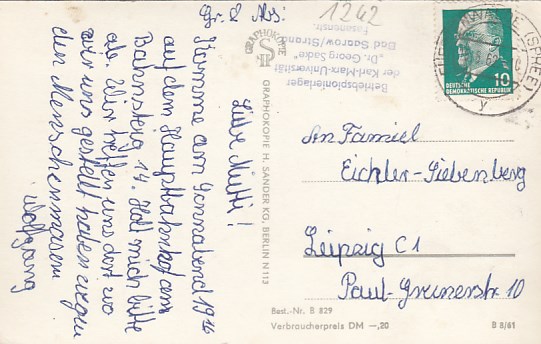 Gr. & Abs:
1242
Betriebspionierlager
der Karl-Marx-Universität
"Dr. Georg Sacke"
Bad Saarow/Strand
Liebe Mutti!
Komme am Sonnabend 19
auf dem Hauptbahnhof am
Bahnsteig 14. Hol mich bitte
ab. Wir treffen uns dort wo
wir uns gestellt haben wegen
den Menschenmassen
Wolfgang
GRAPHOKOPIE
GRAPHOKOPIE H. SANDER KG, BERLIN N 113
(SPREE)
y
10
DEUTSCHE
DEMOKRATISCHE REPUBLIK
An Familiel
Eichler-Siebenberg
Leipzig C1
Paul-Greunerstr. 10
Best.-Nr. B 829
Verbraucherpreis DM —,20
B 8/61